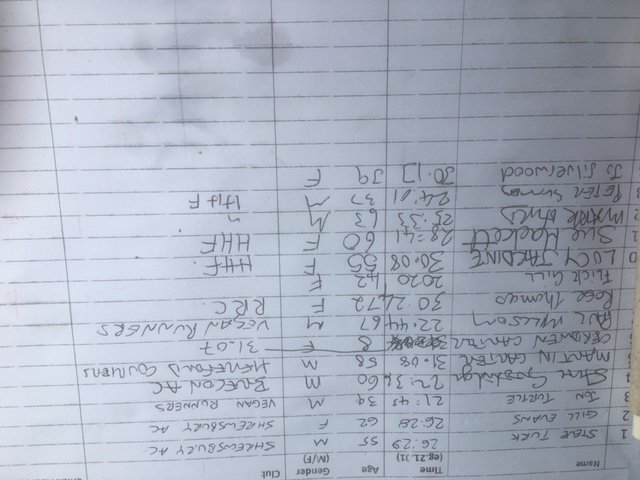 Name Time (eg.21.01) Age Gender (M/F) Club
1 STEVE TURK 26:29 55 M SHREWSBURY AC
2 GILL EVANS 26:28 62 F SHREWSBURY AC
3 JON TURTLE 21:45 39 M VEGAN RUNNERS
4 22:36 60 M BRECON AC
MARTIN CARTER 31.08 58 M HEREFORD COURIERS
CARTER 8 F 31.07
PAUL WILLSON 22.44 67 M VEGAN RUNNERS
Rose Thomas 30.24 72 F RRC.
FLICK GILL 2020 42 F
0 LUCY JARDINE 30.08 55 F HHF
1 Sue Hackett 28:41 60 F HHF
2 MARK 25.33 63 M "
3 PETER 24:01 37 M HHF
Jo Silverwood 30.17 39 F